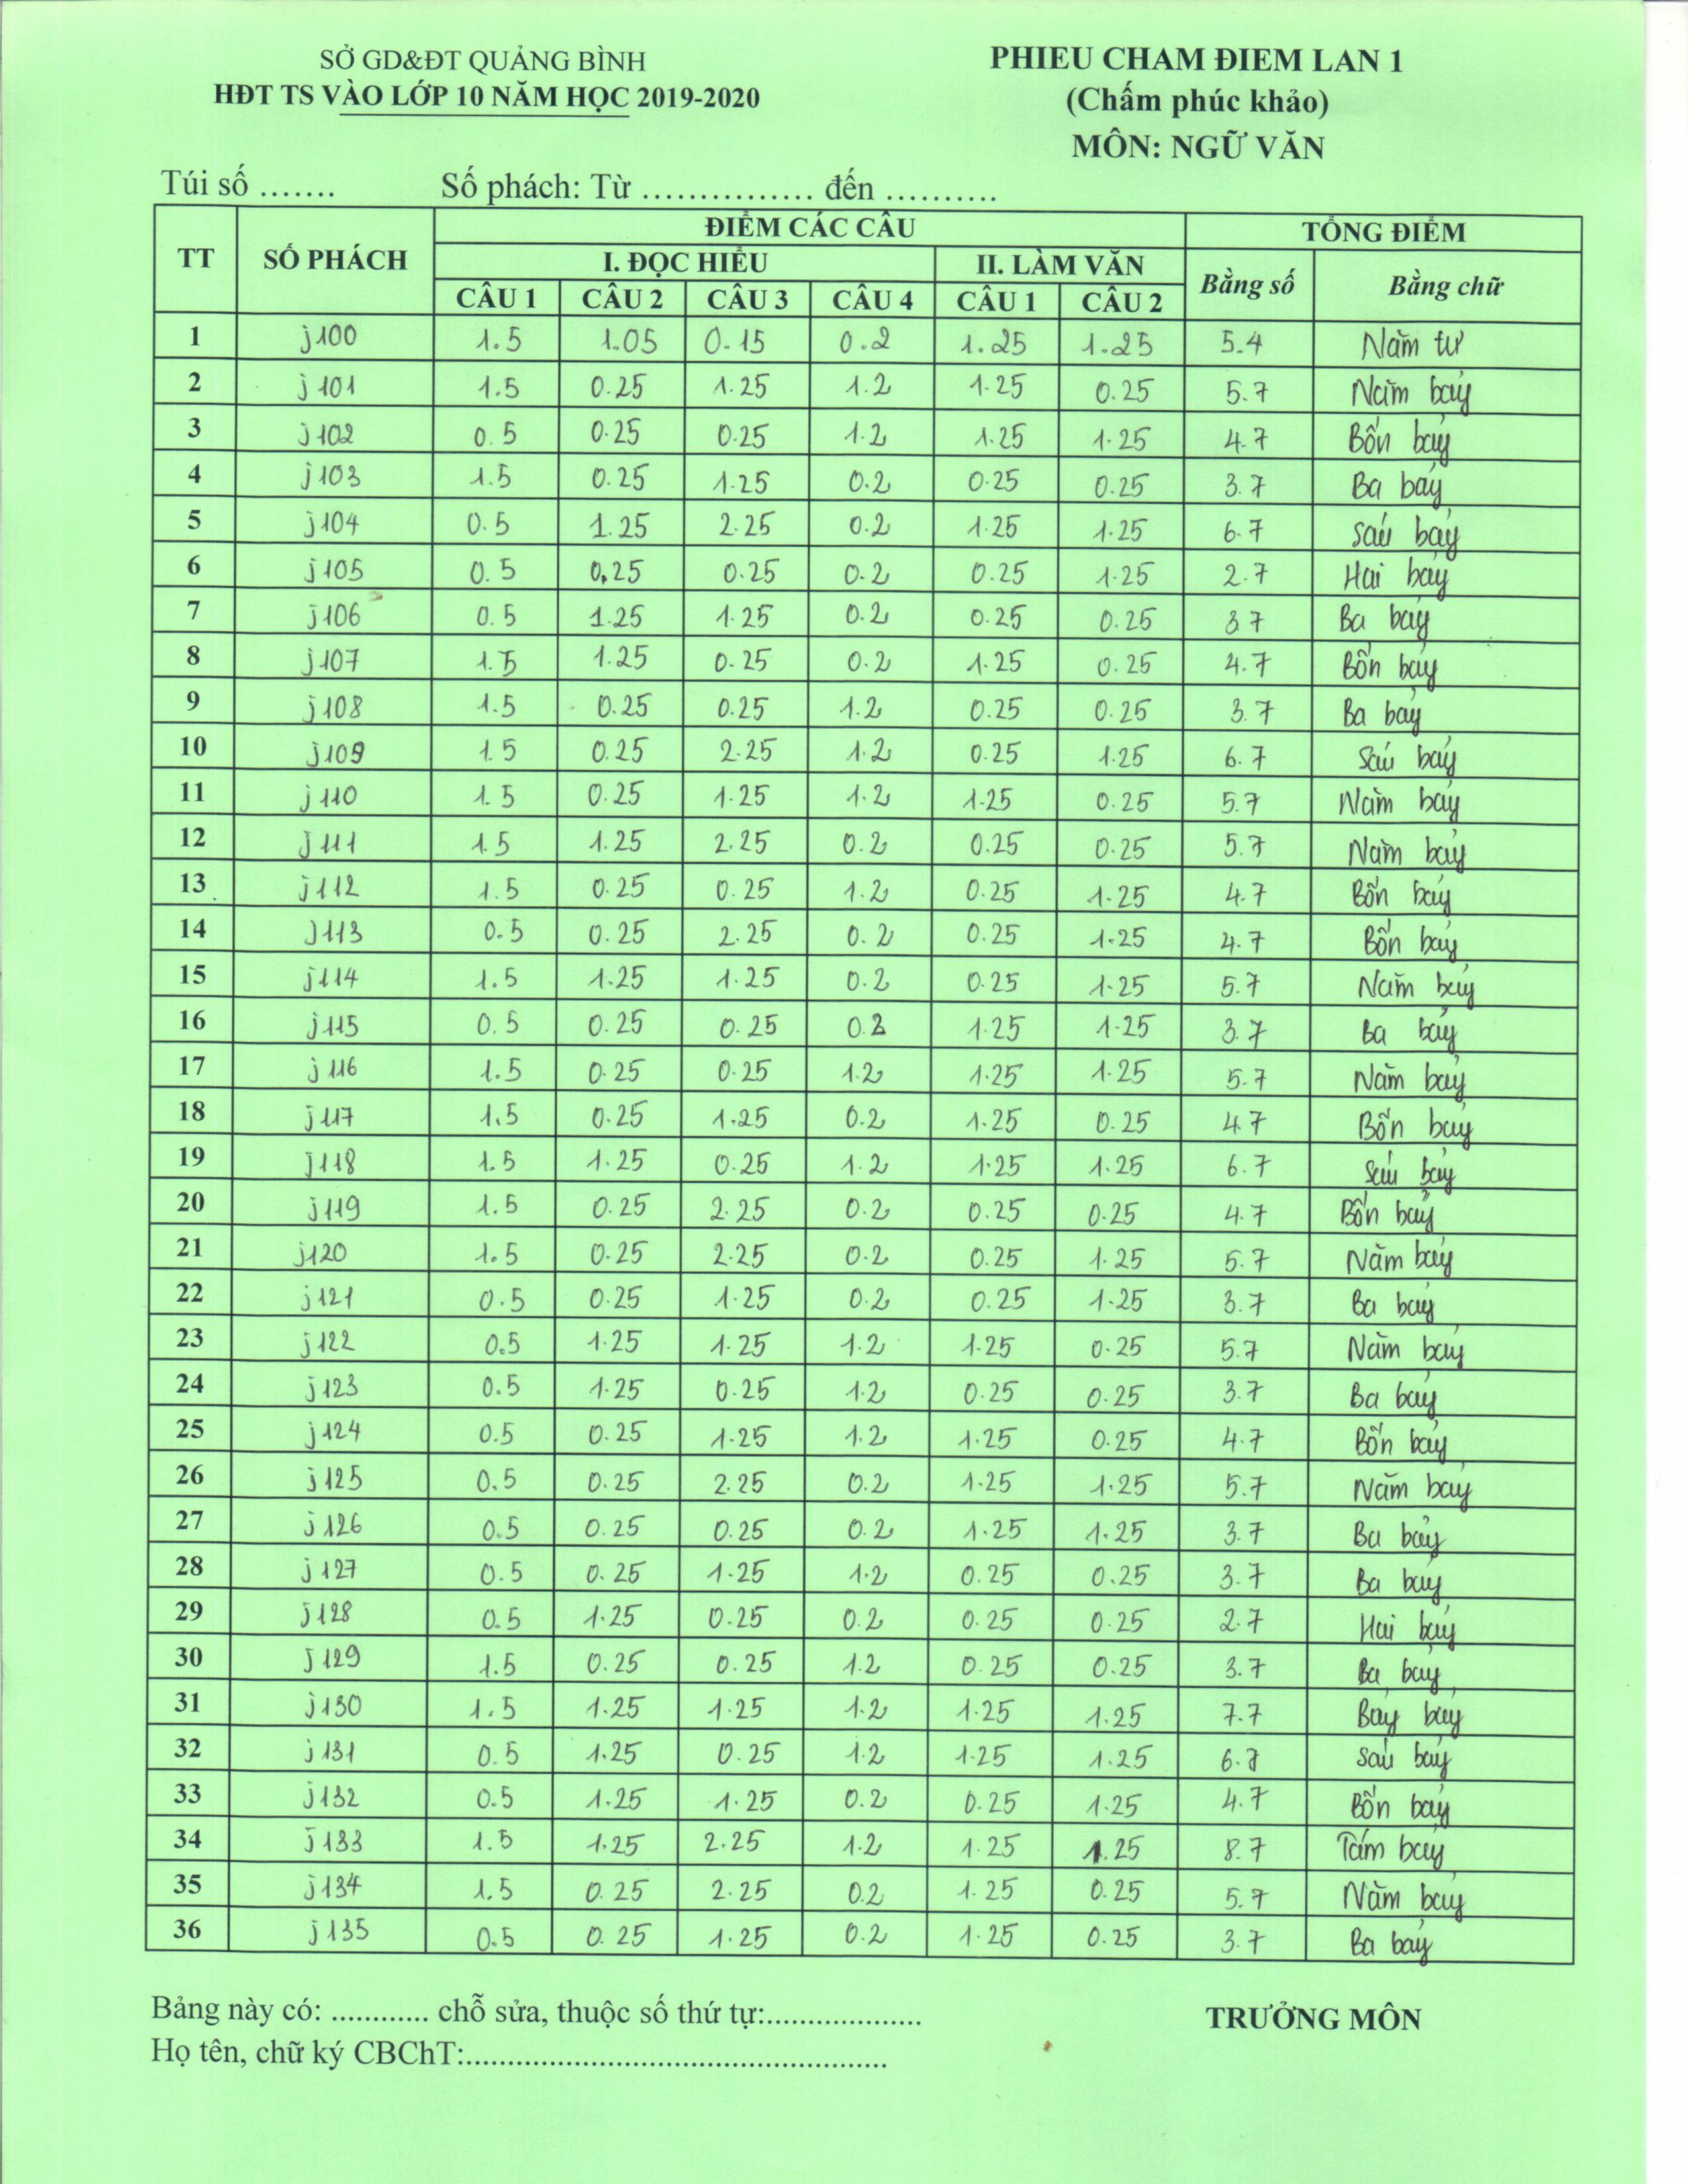 SỞ GD&ĐT QUẢNG BÌNH
HĐT TS VÀO LỚP 10 NĂM HỌC 2019-2020
PHIEU CHAM ĐIEM LAN 1
(Chấm phúc khảo)
MÔN: NGỮ VĂN
Túi số ....... Số phách: Từ ................ đến ..........
TT SỐ PHÁCH ĐIỂM CÁC CÂU TỔNG ĐIỂM
I. ĐỌC HIỂU II. LÀM VĂN Bằng số Bằng chữ
CÂU 1 CÂU 2 CÂU 3 CÂU 4 CÂU 1 CÂU 2
1 j100 1.5 1.05 0.15 0.2 1.25 1.25 5.4 Năm tư
2 j101 1.5 0.25 1.25 1.2 1.25 0.25 5.7 Năm bảy
3 j102 0.5 0.25 0.25 1.2 1.25 1.25 4.7 Bốn bảy
4 j103 1.5 0.25 1.25 0.2 0.25 0.25 3.7 Ba bảy
5 j104 0.5 1.25 2.25 0.2 1.25 1.25 6.7 Sáu bảy
6 j105 0.5 0,25 0.25 0.2 0.25 1.25 2.7 Hai bảy
7 j106 0.5 1.25 1.25 0.2 0.25 0.25 37 Ba bảy
8 j107 1.5 1.25 0.25 0.2 1.25 0.25 4.7 Bốn bảy
9 j108 1.5 0.25 0.25 1.2 0.25 0.25 3.7 Ba bảy
10 j109 1.5 0.25 2.25 1.2 0.25 1.25 6.7 Sáu bảy
11 j110 1.5 0.25 1.25 1.2 1.25 0.25 5.7 Năm bảy
12 j111 1.5 1.25 2.25 0.2 0.25 0.25 5.7 Năm bảy
13 j112 1.5 0.25 0.25 1.2 0.25 1.25 4.7 Bốn bảy
14 j113 0.5 0.25 2.25 0.2 0.25 1.25 4.7 Bốn bảy
15 j114 1.5 1.25 1.25 0.2 0.25 1.25 5.7 Năm bảy
16 j115 0.5 0.25 0.25 0.2 1.25 1.25 3.7 Ba bảy
17 j116 1.5 0.25 0.25 1.2 1.25 1.25 5.7 Năm bảy
18 j117 1.5 0.25 1.25 0.2 1.25 0.25 4.7 Bốn bảy
19 j118 1.5 1.25 0.25 1.2 1.25 1.25 6.7 Sáu bảy
20 j119 1.5 0.25 2.25 0.2 0.25 0.25 4.7 Bốn bảy
21 j120 1.5 0.25 2.25 0.2 0.25 1.25 5.7 Năm bảy
22 j121 0.5 0.25 1.25 0.2 0.25 1.25 3.7 Ba bảy
23 j122 0.5 1.25 1.25 1.2 1.25 0.25 5.7 Năm bảy
24 j123 0.5 1.25 0.25 1.2 0.25 0.25 3.7 Ba bảy
25 j124 0.5 0.25 1.25 1.2 1.25 0.25 4.7 Bốn bảy
26 j125 0.5 0.25 2.25 0.2 1.25 1.25 5.7 Năm bảy
27 j126 0.5 0.25 0.25 0.2 1.25 1.25 3.7 Ba bảy
28 j127 0.5 0.25 1.25 1.2 0.25 0.25 3.7 Ba bảy
29 j128 0.5 1.25 0.25 0.2 0.25 0.25 2.7 Hai bảy
30 j129 1.5 0.25 0.25 1.2 0.25 0.25 3.7 Ba bảy
31 j130 1.5 1.25 1.25 1.2 1.25 1.25 7.7 Bảy bảy
32 j131 0.5 1.25 0.25 1.2 1.25 1.25 6.7 Sáu bảy
33 j132 0.5 1.25 1.25 0.2 0.25 1.25 4.7 Bốn bảy
34 j133 1.5 1.25 2.25 1.2 1.25 1.25 8.7 Tám bảy
35 j134 1.5 0.25 2.25 0.2 1.25 0.25 5.7 Năm bảy
36 j135 0.5 0.25 1.25 0.2 1.25 0.25 3.7 Ba bảy
Bảng này có: ............ chỗ sửa, thuộc số thứ tự:...................
TRƯỞNG MÔN
Họ tên, chữ ký CBChT:....................................................